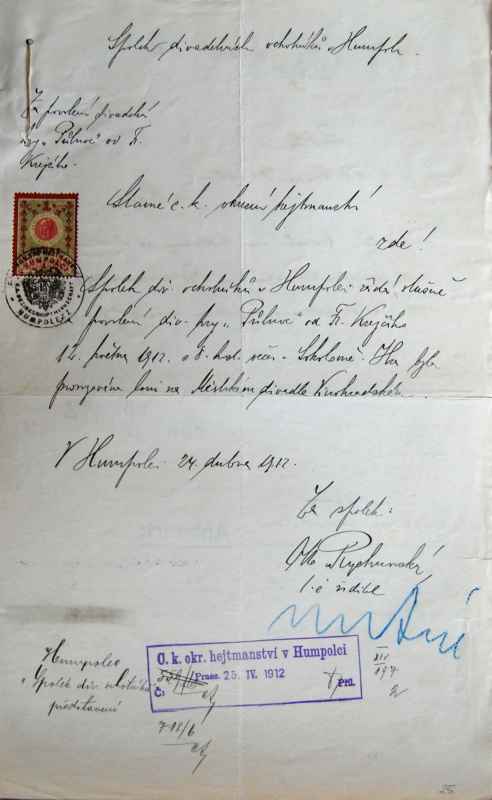 Spolek divadelních ochotníků v Humpolci.
Za povolení divadelní
hry „Půlnoc“ od Fr.
Krejčího.
Slavné c. k. okresní hejtmanství
zde!
HUMPOLEC
Spolek div. ochotníků v Humpolci žádá slušně
povolení div. hry „Půlnoc“ od Fr. Krejčího
12. května 1912 o 8. hod. večer v Sokolovně. Hra byla
provozována loni na Městském divadle Vinohradském.
V Humpolci 24. dubna 1912.
Za spolek:
Otto Rychnovský
t. č. ředitel
C. k. okr. hejtmanství v Humpolci
Praes. 25. IV. 1912
Č:
Příl.
XIV
197
2
Humpolec
Spolek div. ochotníků
představení
718/6
25